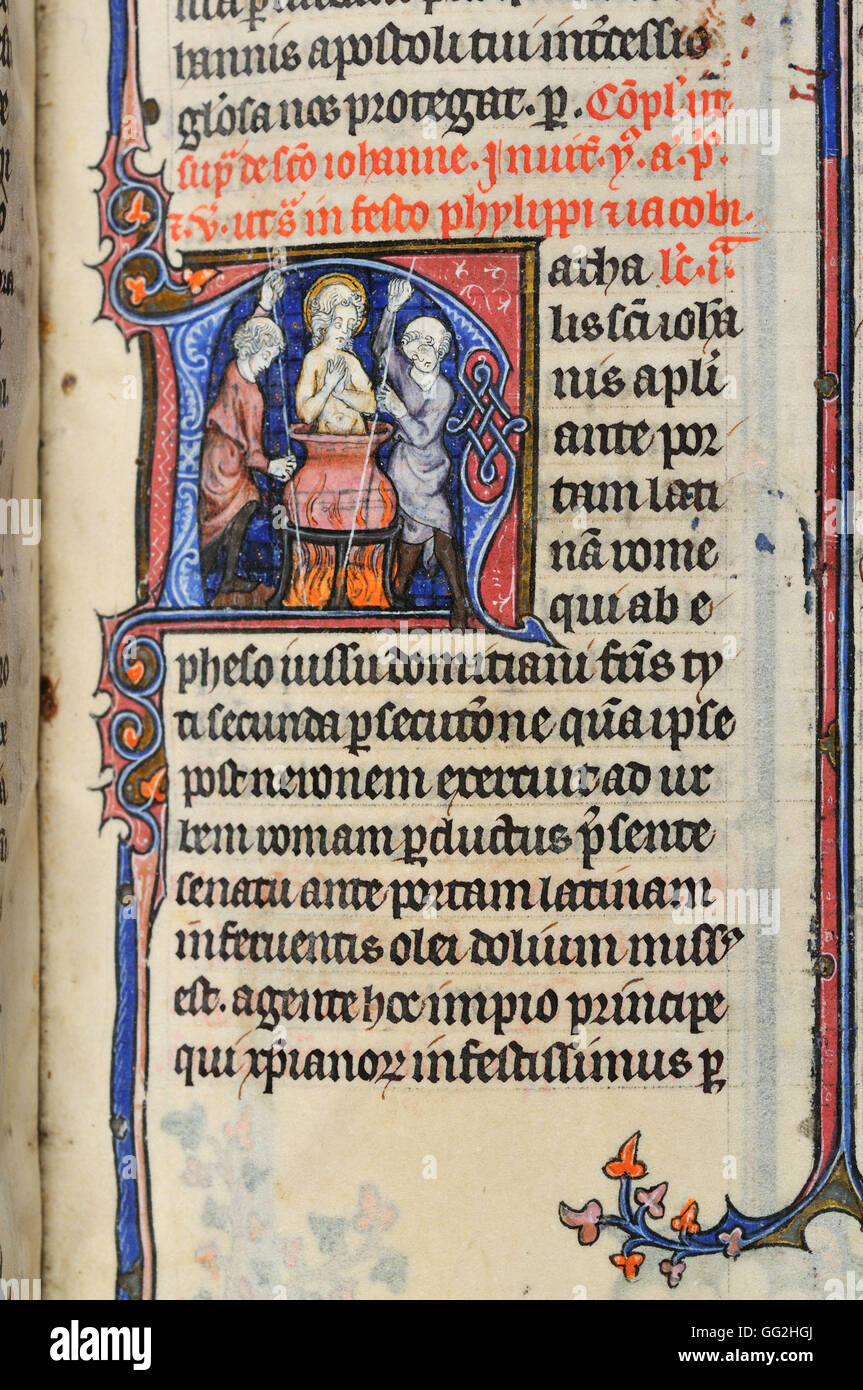 hannis apostoli tui int̄cessio
gl̓osa nos protegat. ꝑ. Cōpl̓ ut
sup̄ de sc̄o iohanne. Inuit̄. y̓. a. p̄.
⁊ v̓. ut s̄ in festo phylippi ⁊ iacobi.
Natha lc̄. ia.
lis sc̄i ioh̄a
nis apl̄i
ante por
tam lati
nā rome
qui ab e
pheso iussu domitiani fr̄is ty
ti secunda ꝑsecutōne quā ipse
post neronem exercuit ad ur
bem romam ꝑductus p̄sente
senatu ante portam latinam
in feruentis olei dolium missꝰ
est. agente hoc impio principe
qui xp̄ianoꝝ infestissimus ꝑ
alamy
Image ID: GG2HGJ
www.alamy.com